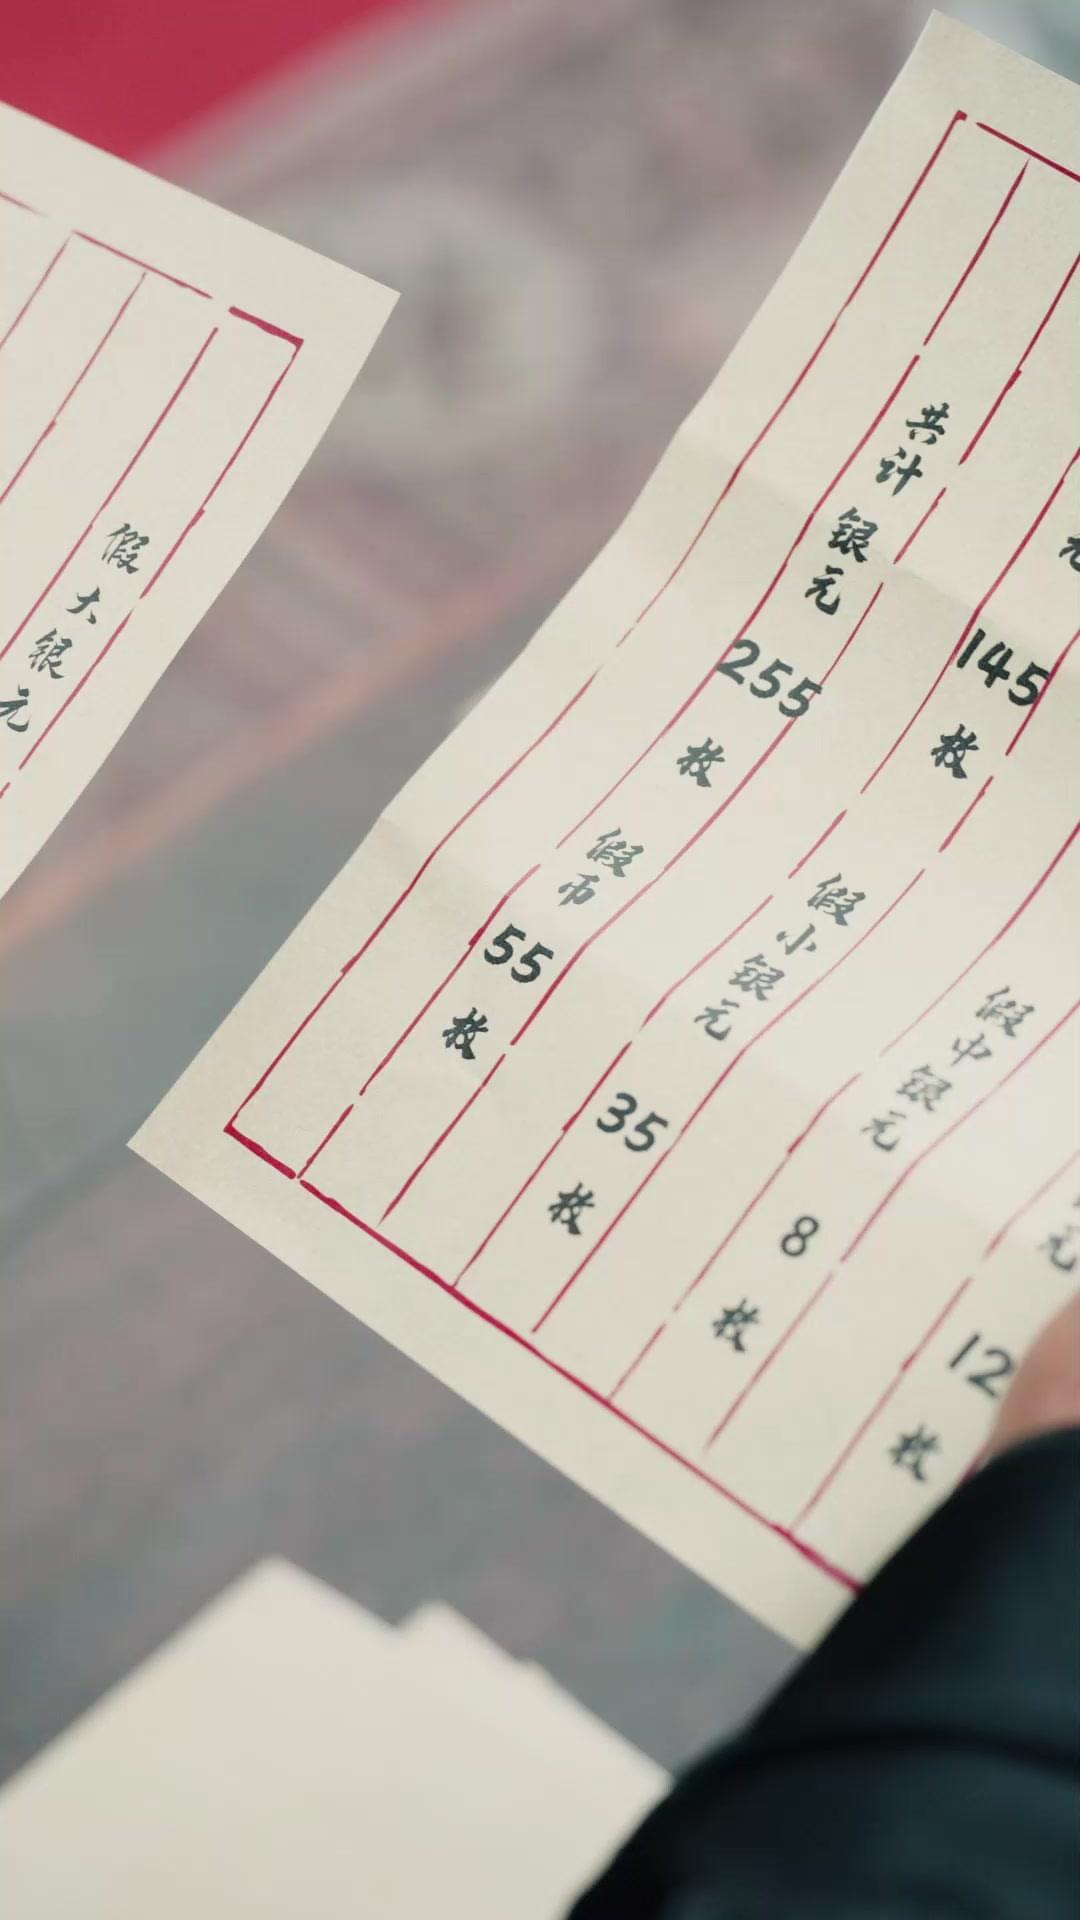 元 12 枚
假中银元 8 枚
元 145 枚 假小银元 35 枚
共计 银元 255 枚 假币 55 枚
假大银元